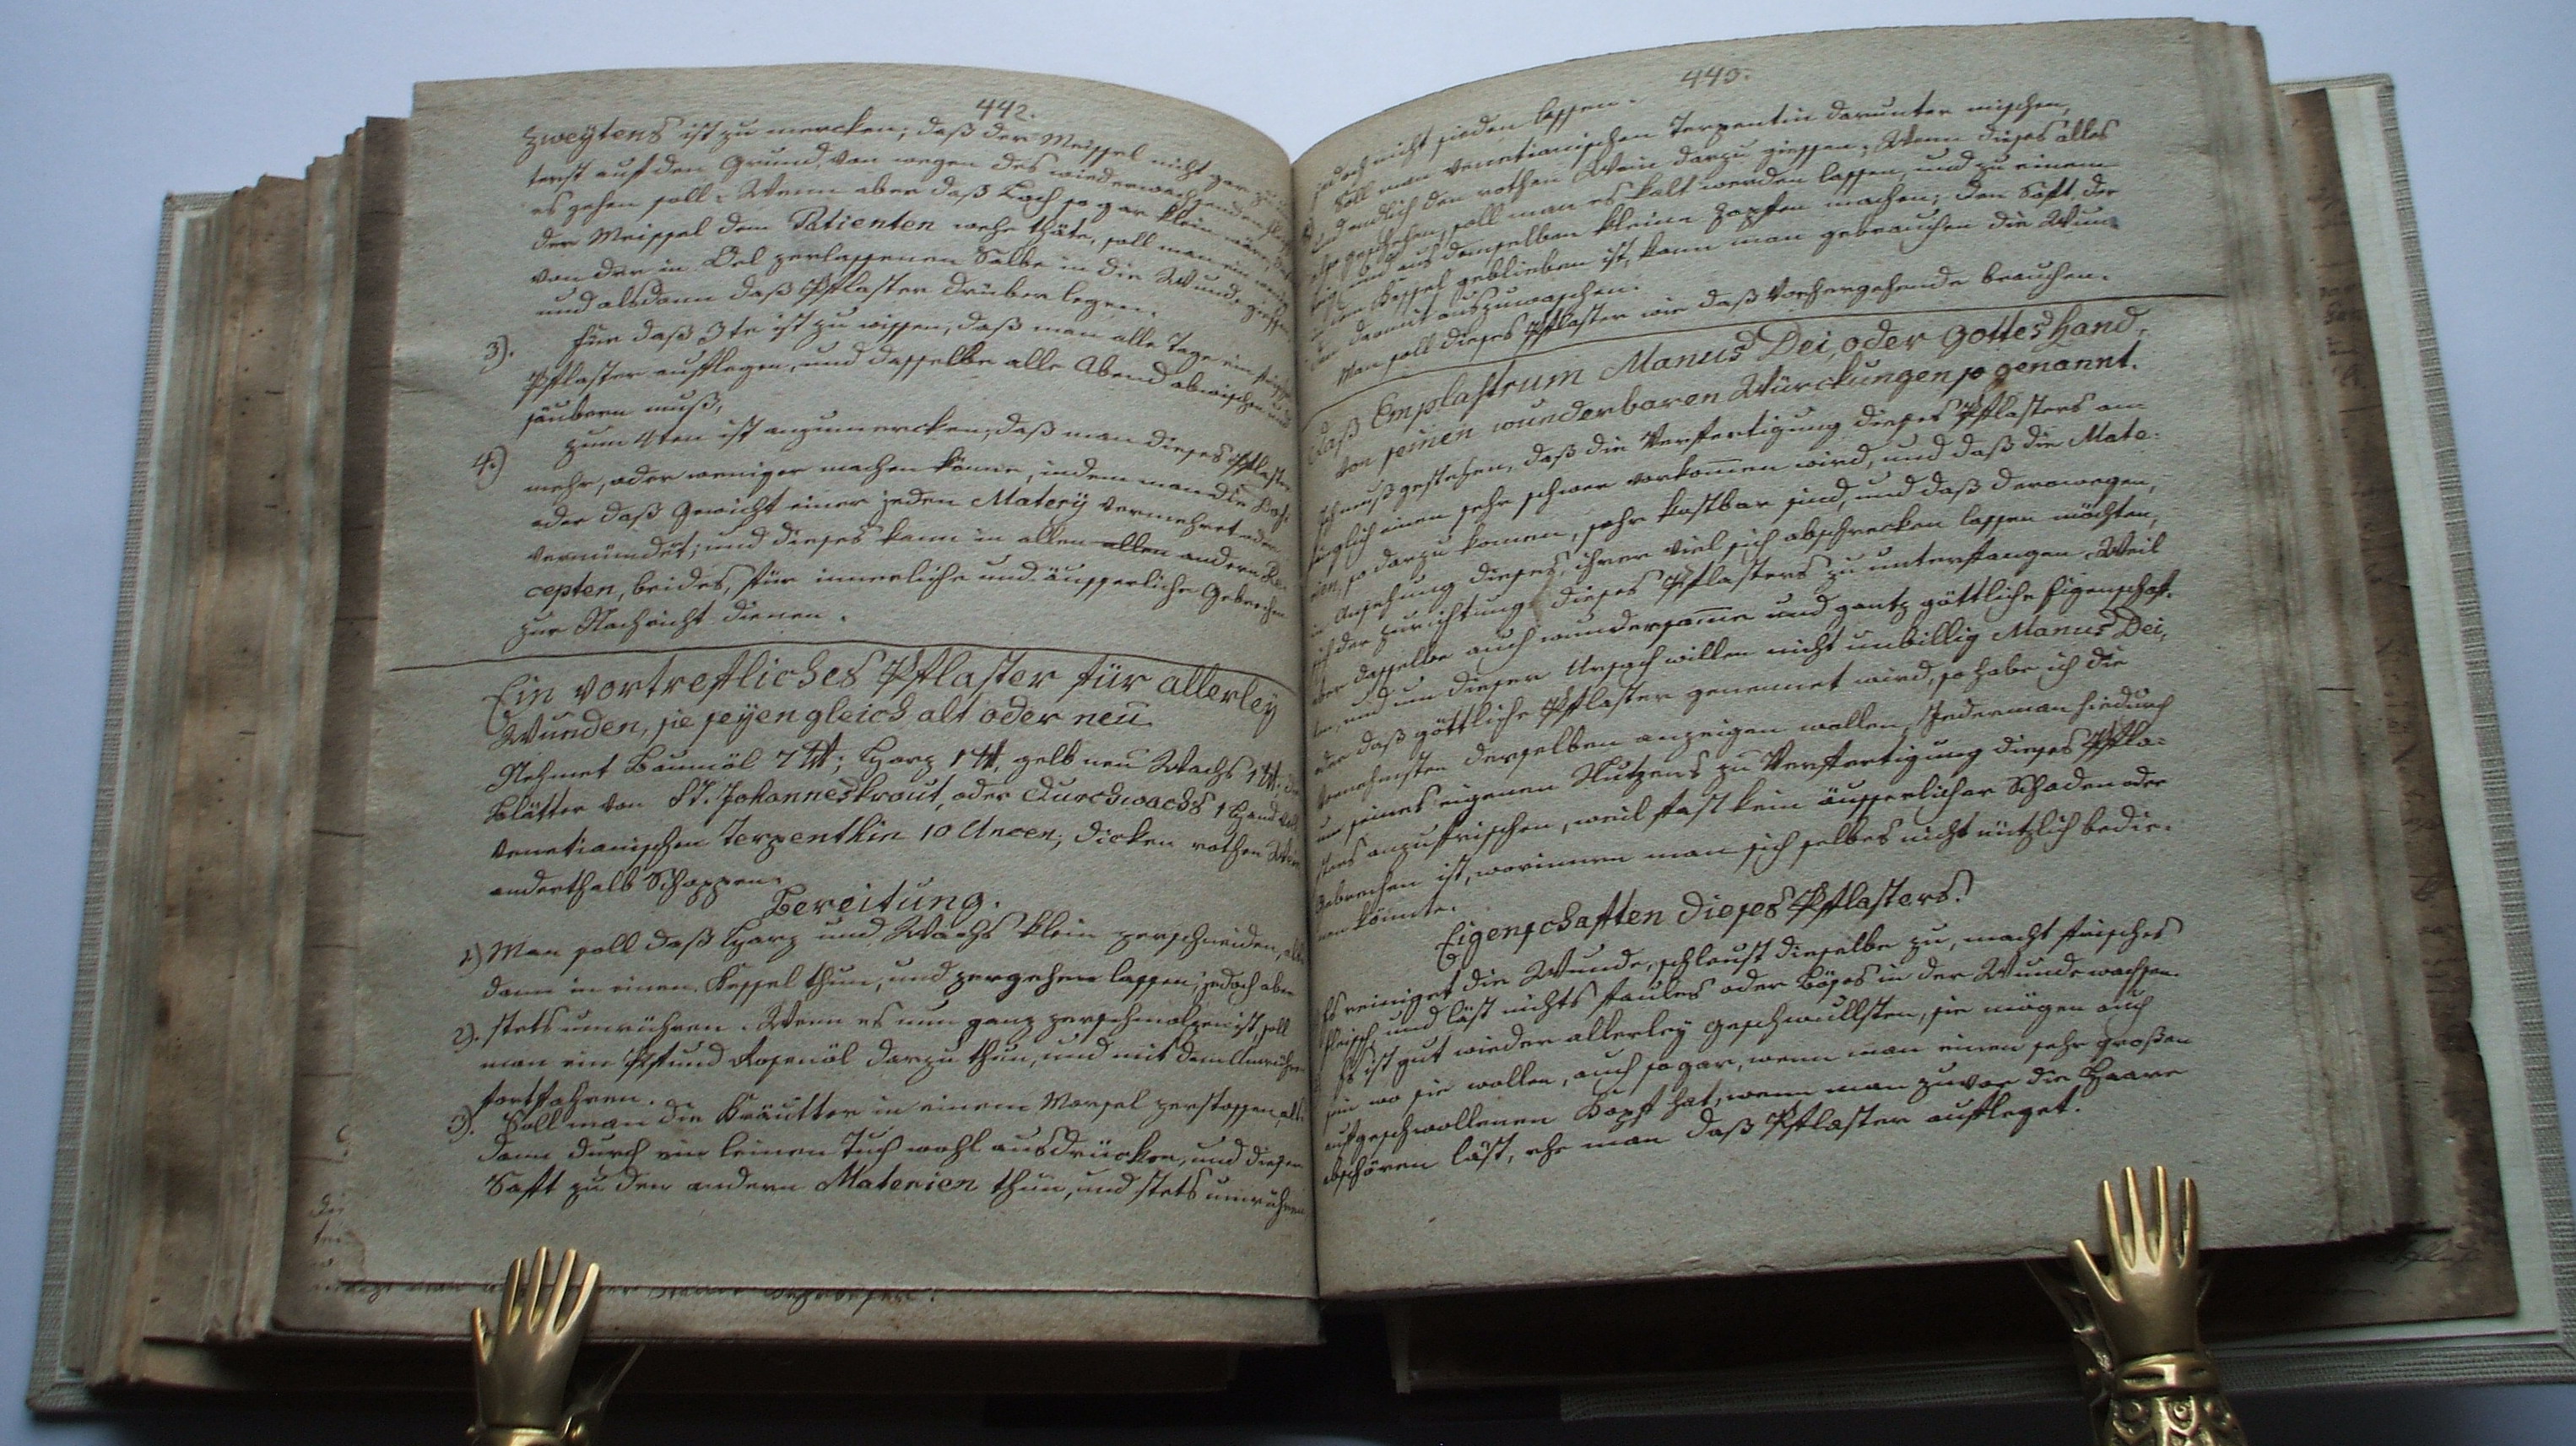 442.
Zweÿtens ist zu mercken; daß der Meissel nicht gar zu
terst auf den Grund, von wegen des wiederwachsenden
es gehen soll. Wenn aber daß Loch so gar klein wäre,
der Meissel dem Patienten wehe thäte, soll man ein wenig
von der in Oel zerlassenen Salbe in die Wunde giessen
und alsdann daß Pflaster drüber legen.
3). Für daß 3te ist zu wissen, daß man alle Tage ein
Pflaster auflegen, und dasselbe alle Abend abwischen und
säubern muß,
4.) zum 4ten ist anzumercken, daß man dieses Pflaster
mehr, oder weniger machen könne, indem man die
oder daß Gewicht einer jeden Materÿ vermehret oder
vermindet; und dieses kann in allen allen andern Re-
cepten, beides, für innerliche und äusserliche Gebrechen
zur Nachricht dienen.
Ein vortrefliches Pflaster für allerley
Wunden, sie seÿen gleich alt oder neu.
Nehmet Baumöl 7 ℔; Harz 1 ℔, gelb neu Wachs 1 ℔, die
Blätter von St. Johanneskraut, oder Durchwachs 1 Hand
venetianischen Terpenthin 10 Uncen; dicken rothen Wein
anderthalb Schoppen.
Bereitung.
1.) Man soll daß Harz und Wachs klein zerschneiden,
dann in einen Kessel thun, und zergehen lassen; jedoch aber
2). stets umrühren. Wenn es nun ganz zerschmolzen ist, soll
man ein Pfund Rosenöl darzu thun, und mit dem Umrühren
fortfahren.
3). Soll man die Kräutter in einem Mörsel zerstossen, als-
dann durch ein leinen Tuch wohl ausdrücken, und diesen
Safft zu den andern Materien thun, und stets umrühren
443.
jedoch nicht sieden lassen.
Soll man venetianischen Terpentin darunter mischen,
und endlich den rothen Wein darzu giessen; Wenn dieses alles
also geschehen, soll man es kalt werden lassen, und zu einem
und aus demselben kleine Zapffen machen; den Saft, der
in dem Kessel geblieben ist, kann man gebrauchen die Wun-
den damit auszuwaschen.
Man soll dieses Pflaster wie daß vorhergehende brauchen.
Daß Emplastrum Manus Dei, oder Gottes hand,
von seinen wunderbaren Würckungen so genannt.
Ich muß gestehen, daß die Verfertigung dieses Pflasters an-
fänglich einem sehr schwer vorkom̅en wird, und daß die Mate-
rien, so darzu komen, sehr kostbar sind, und daß derowegen,
in Ansehung dieses, ihrer viel sich abschrecken lassen möchten,
sich der Zurichtung dieses Pflasters zu unterfangen. Weil
aber dasselbe auch wundersam̅e und gantz göttliche Eigenschaf-
ten, und um dieser Ursach willen nicht unbillig Manus Dei,
oder daß göttliche Pflaster genennet wird, so habe ich die
vornehmsten derselben anzeigen wollen, Jederman hiedurch
um seines eigenen Nutzens zu Verfertigung dieses Pfla-
sters anzufrischen, weil fast kein äusserlicher Schaden oder
Gebrechen ist, worinnen man sich selbes nicht nützlich bedie-
nen könnte.
Eigenschafften dieses Pflasters.
Es reiniget die Wunde, schleust dieselbe zu, macht frisches
Fleisch und läst nichts faules oder böses in der Wunde wachsen.
Es ist gut wieder allerleÿ Geschwullsten, sie mögen auch
sein wo sie wollen, auch sogar, wenn man einen sehr großen
aufgeschwollenen Kopf hat, wenn man zuvor die Haare
abschören läst, ehe man daß Pflaster aufleget.